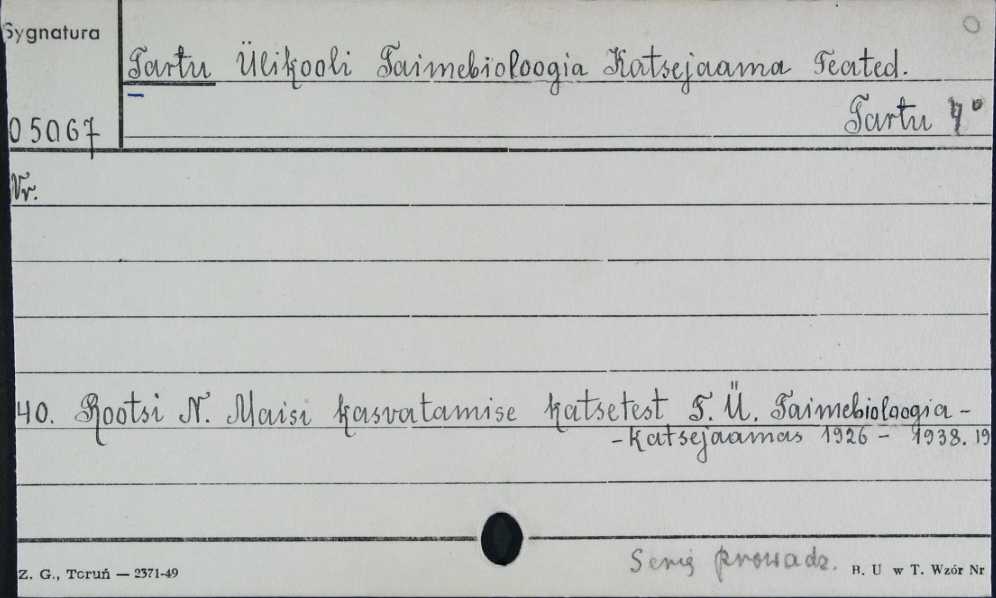 Sygnatura
Tartu Ülikooli Taimebioloogia Katsejaama Teated.
Tartu 4°
05067
Nr.
40. Rootsi N. Maisi kasvatamise katsetest T. Ü. Taimebioloogia -
- katsejaamas 1926 - 1938. 19
Serię prowadz.
Z. G., Toruń — 2371-49
B. U w T. Wzór Nr